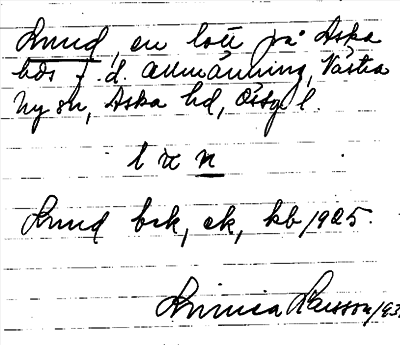 Lund, en lott på Aska
hds f. d. allmänning, Västra
Ny sn, Aska hd, Östg l.
Lund bsk, ek, kb 1925.
Larsson 193